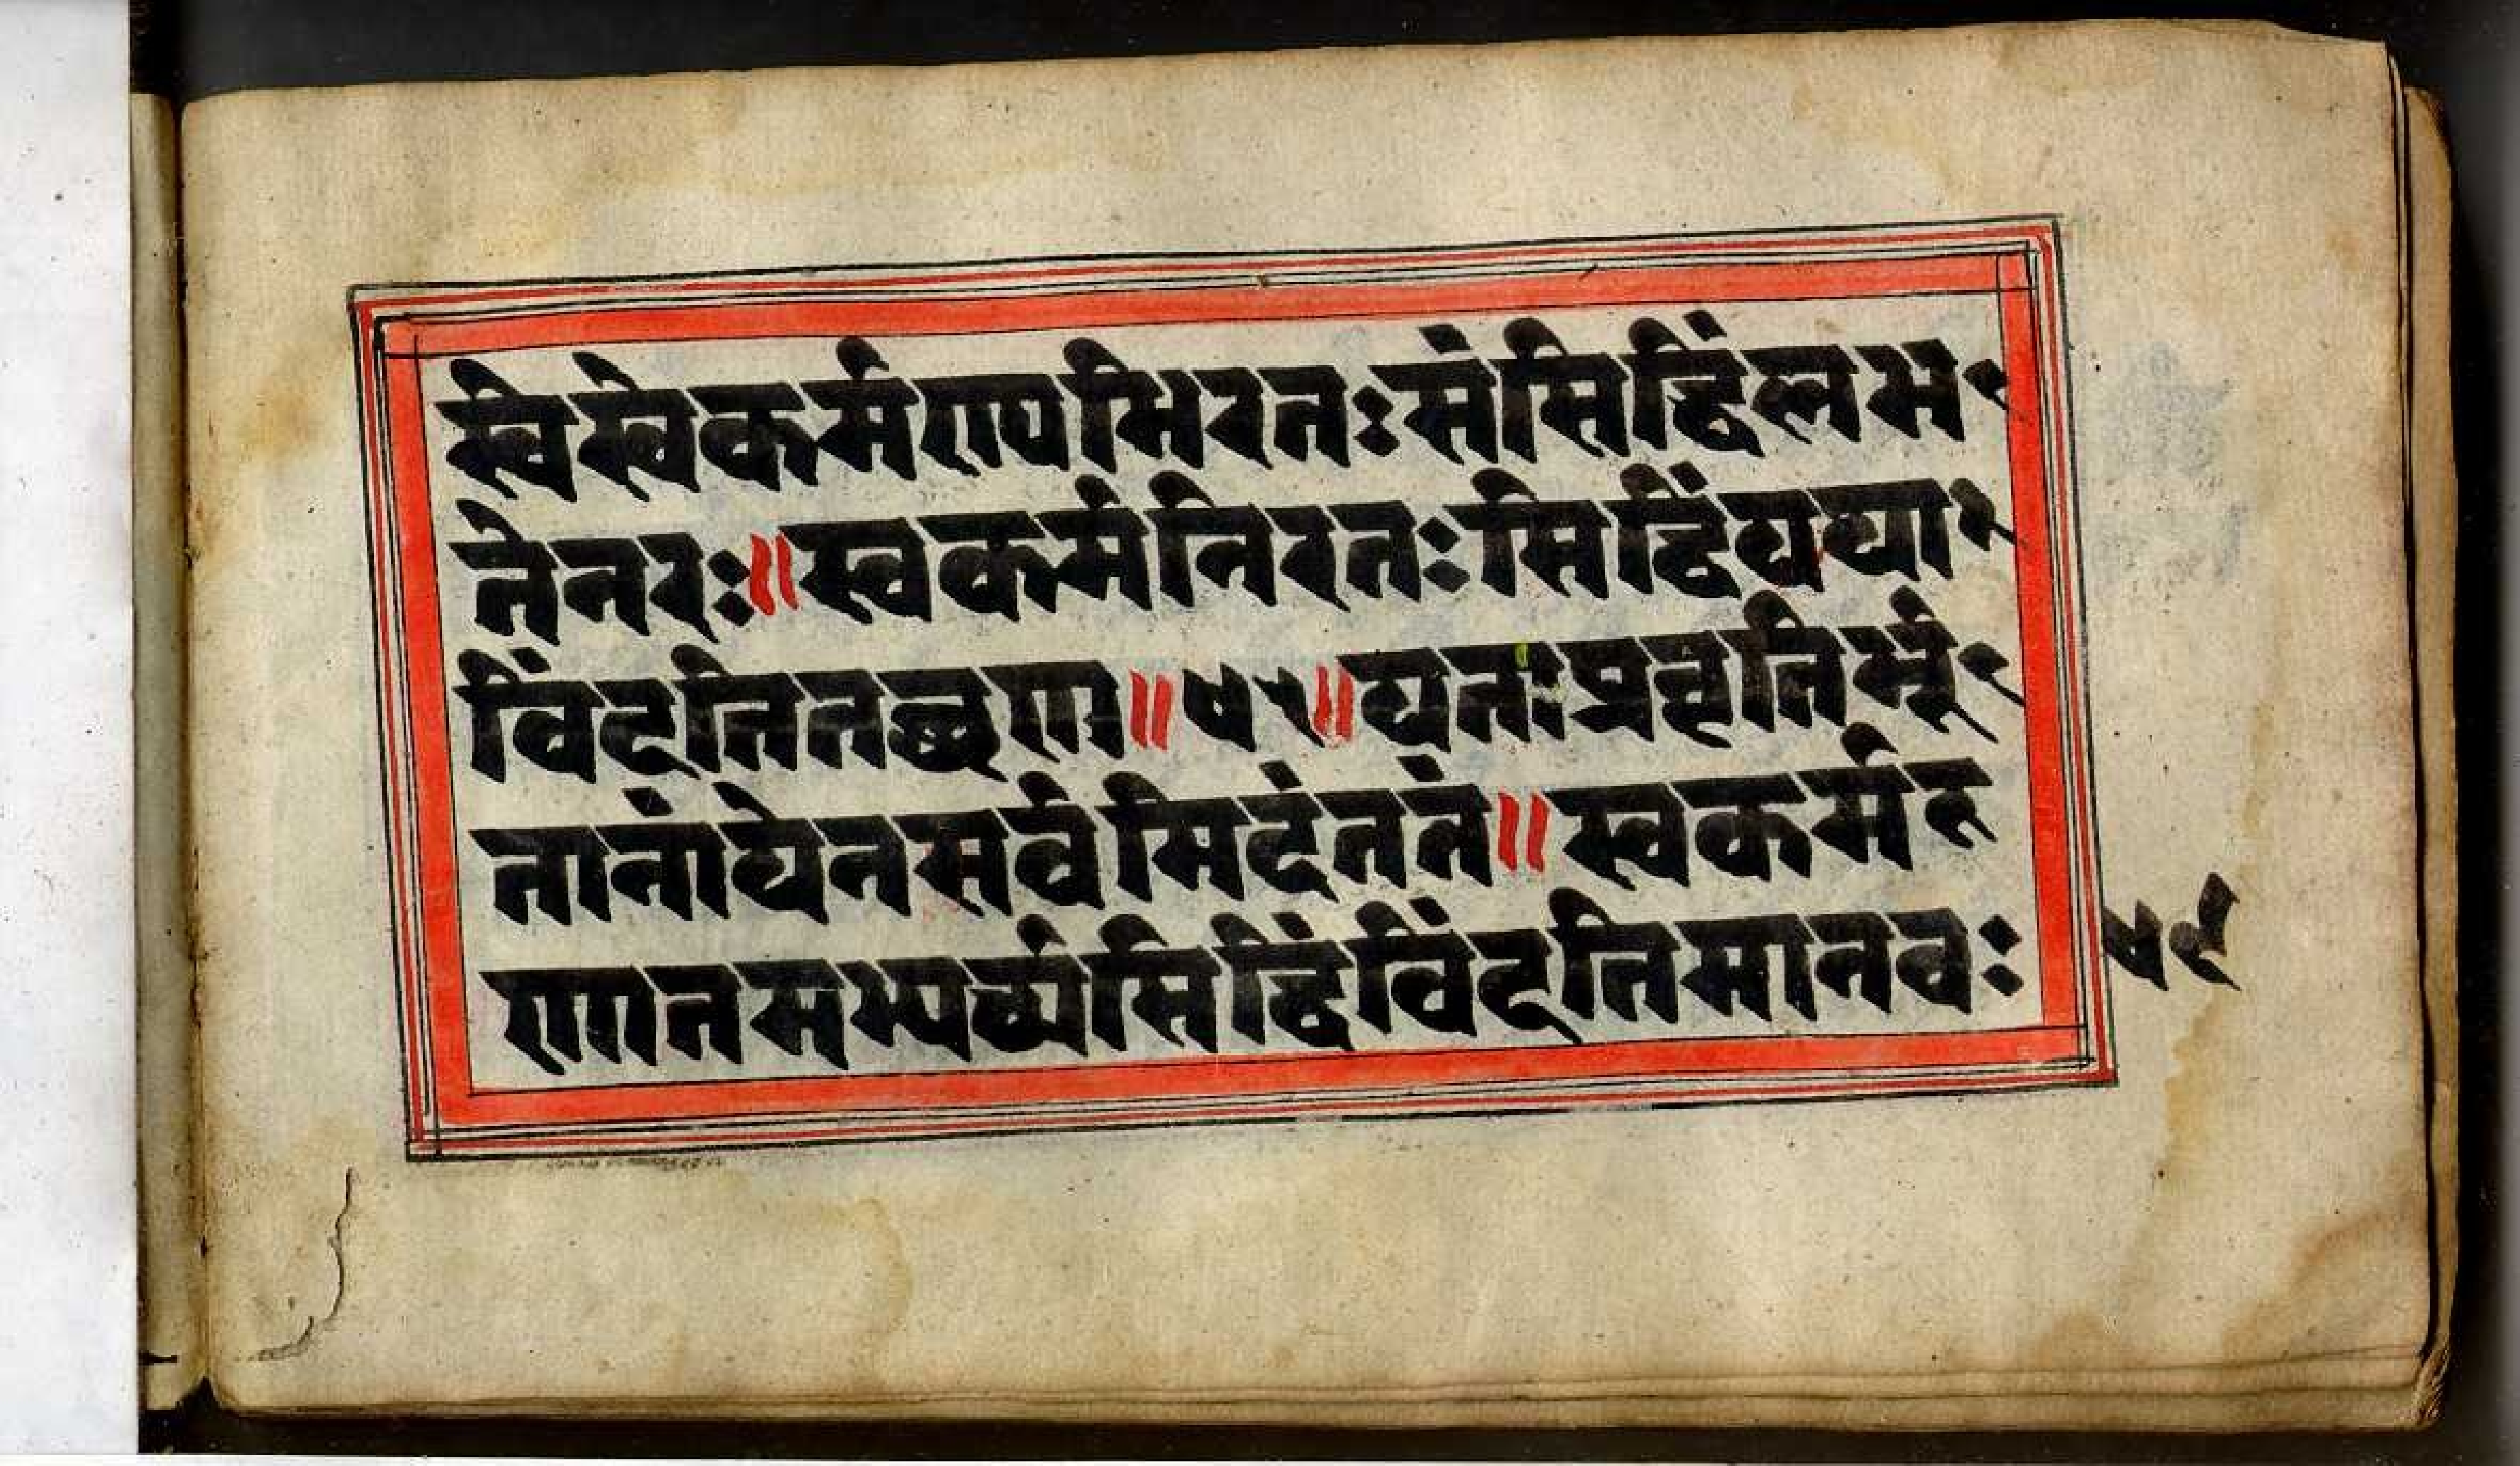 स्वे स्वे कर्मण्यभिरतः संसिद्धिं लभ-
ते नरः ॥ स्वकर्मनिरतः सिद्धिं यथा-
विंदति तच्छृणु ॥ ४५ ॥ यतः प्रवृतिर्भू-
तानां येन सर्वमिदं ततं ॥ स्वकर्म
णा तमभ्यर्च्य सिद्धिं विंदति मानवः
४९